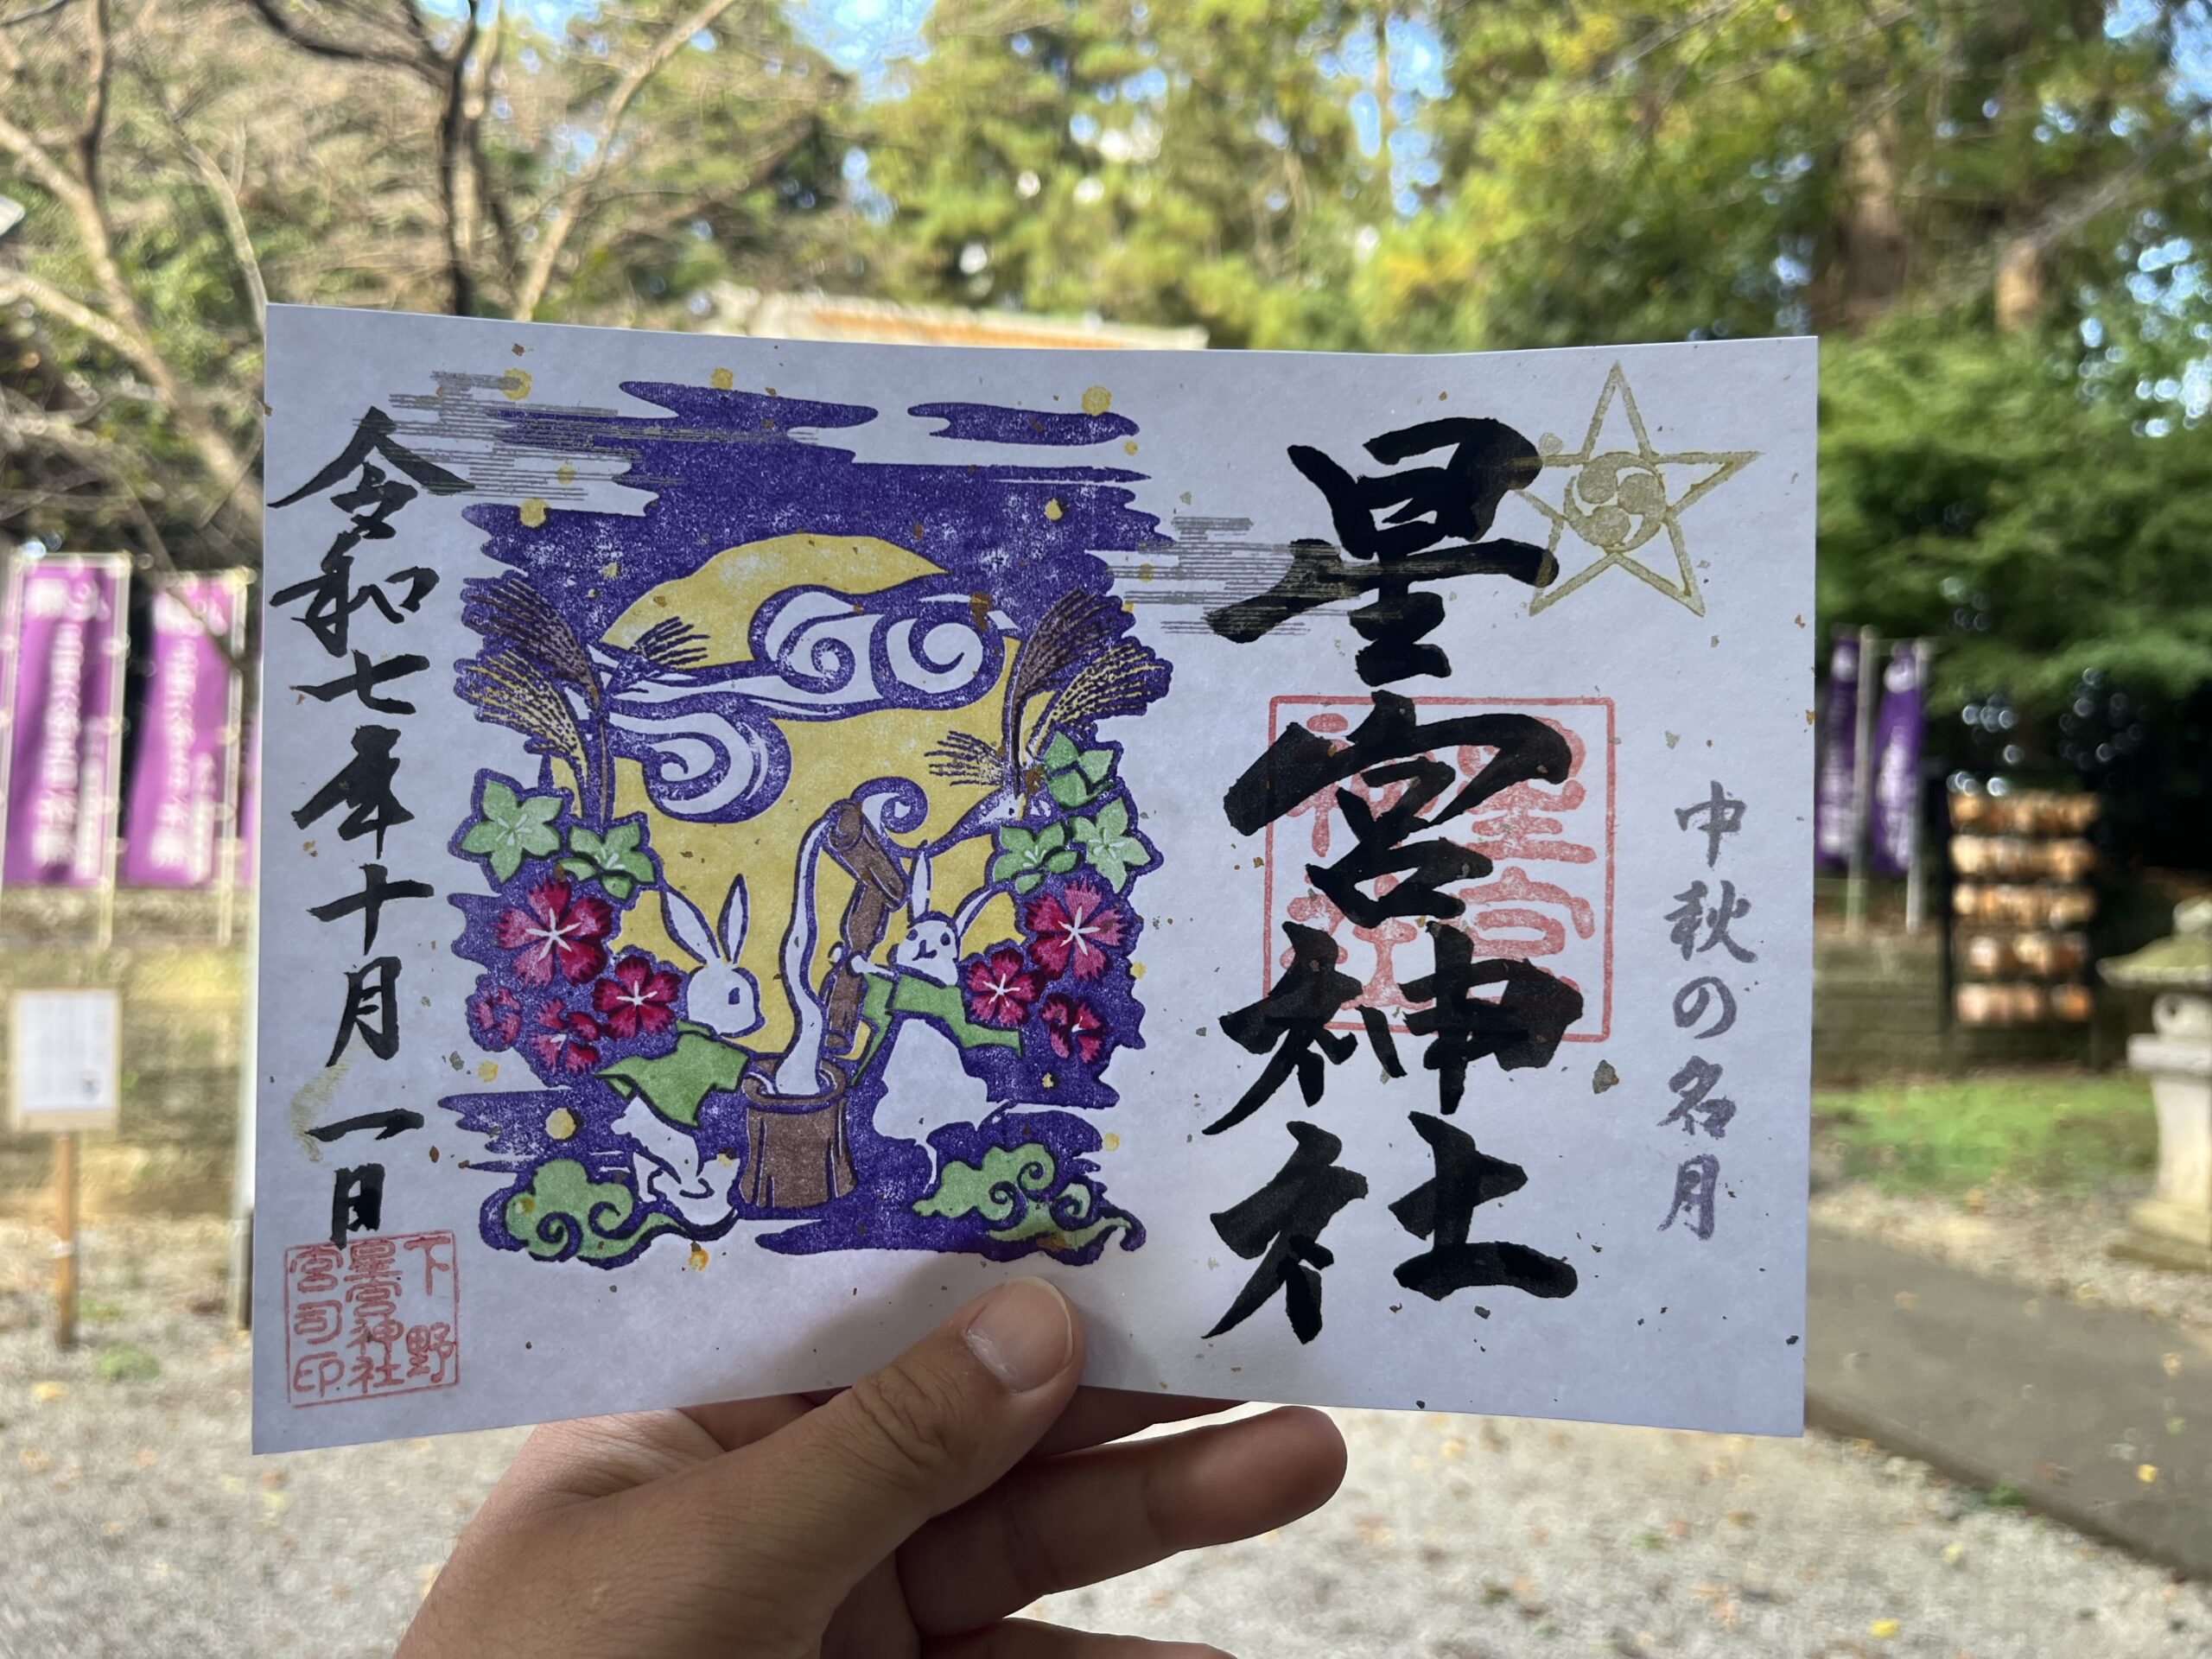 中秋の名月
星宮神社
星宮
神社
令和七年十月一日
下野
星宮神社
宮司印